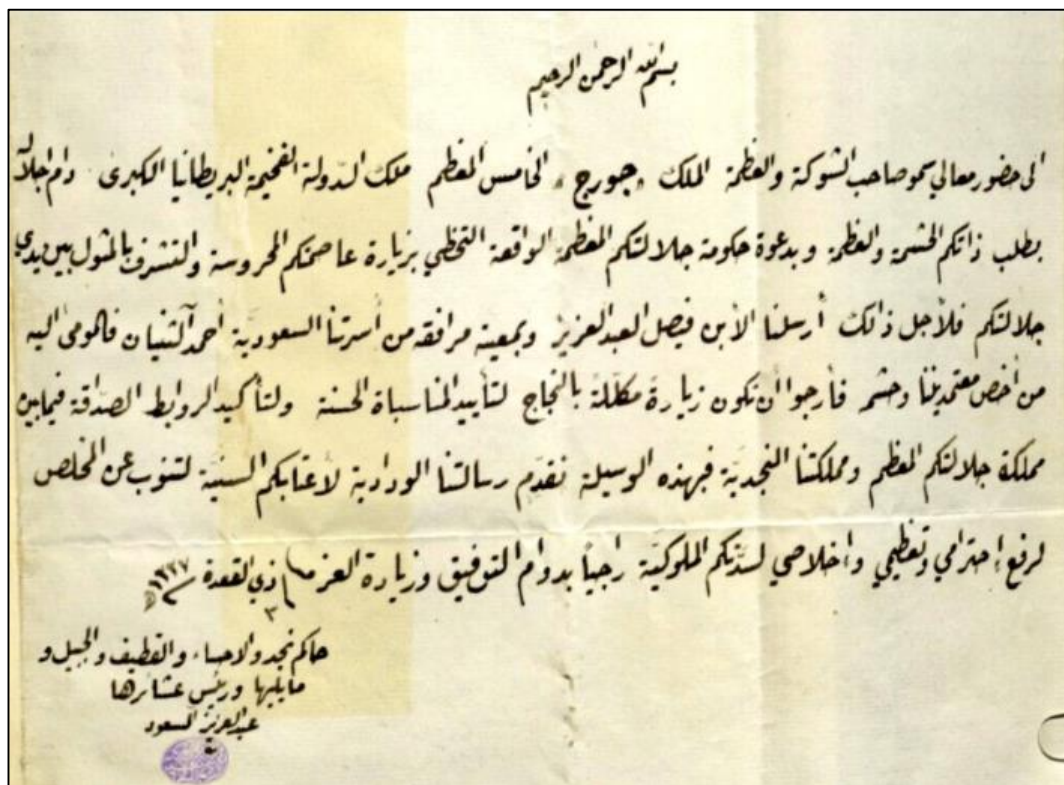 بسم الله الرحمن الرحيم
الى حضور معالي سمو صاحب الشوكة والعظمة الملك "جورج" الخامس المعظم ملك الدولة الفخيمة البريطانيا الكبرى دام اجلاله
بطلب ذاتكم الحشمة والعظمة وبدعوة حكومة جلالتكم المعظمة الواقعة التحظي بزيارة عاصمتكم المحروسة والتشرف بالمثول بين يدي
جلالتكم فلأجل ذالك أرسلنا الأبن فيصل العبد العزيز وبمعية مرافقه من أسرتنا السعودية أحمد آلثنيان فالمومى اليه
من أخص معتمديننا وحشم فأرجوا أن تكون زيارة مكللة بالنجاح لتأييد المناسباة الحسنة ولتأكيد الروابط الصداقة فيمابين
مملكة جلالتكم المعظم ومملكتنا النجدية فبهذه الوسيلة نقدم رسالتنا الودادية لاعتابكم السنية لتنوب عن المخلص
لرفع إحترامي وتعظيمي واخلاصي لسدتكم الملوكية راجياً بدوام التوفيق وزيادة العز ذي القعدة ١٣٣٧
٣
حاكم نجد والاحساء والقطيف والجبيل و
مايليها ورئيس عشائرها
عبدالعزيز السعود